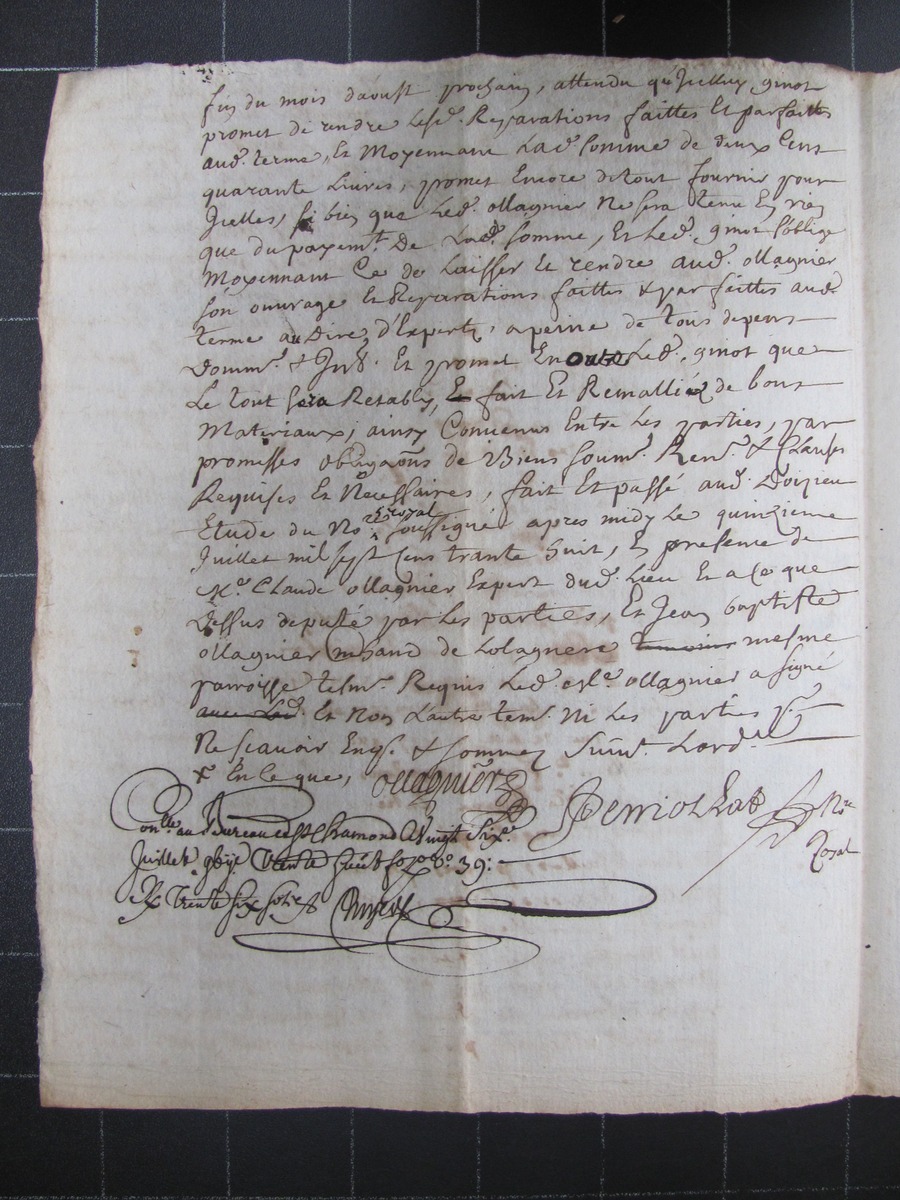 fin du mois daoust prochain, attendu qu'Icelluy ginot
promet de rendre lesd. Reparations faittes Et parfaittes
aud. terme, Et Moyennant Lad. somme de deux Cent
quarante Livres, promet Encore de tout fournir pour
Icelles, si bien que Led. ollagnier Ne sera tenu En rien
que du payemt. De Lad. somme, Et Led. ginot s'oblige
Moyennant Ce de Laisser Et rendre aud. ollagnier
son ouvrage Et Reparations faittes & parfaittes aud.
terme au Dire d'Experts, a peine de tous depens
Domm. & Int. Et promet En outre Led. ginot que
Le tout sera Retably, Et fait Et Remallié de bons
Materiaux, ainsy Convenus Entre Les parties, par
promesses obligaons de Biens soum. Ren. & Clauses
Requises Et Necessaires, fait Et passé aud. Doizieu
Etude du Nore. Royal soussigné apres midy Le quinzieme
Juillet mil sept Cens trante huit, En presence de
Me. Claude ollagnier Expert dud. Lieu Et a Ce que
Dessus deputé par Les parties, Et Jean baptiste
ollagnier de Lolagnere temoins mesme
parroisse tesm. Requis Led. ollagnier a signé
avec Led. Et Non L'autre tem. Ni Les parties p.
Ne scavoir Enq. & sommez suivt. Lord.
x En ce que, ollagnier
No.
Royal
Conlle au Bureau de St Chamond Le Vingt six
Juillet trente huit fo 39.
Rx trente six sols